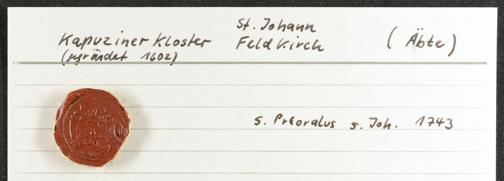 St. Johann
Kapuziner Kloster Feldkirch (Äbte)
(gegründet 1602)
S. Preoralus s. Joh. 1743